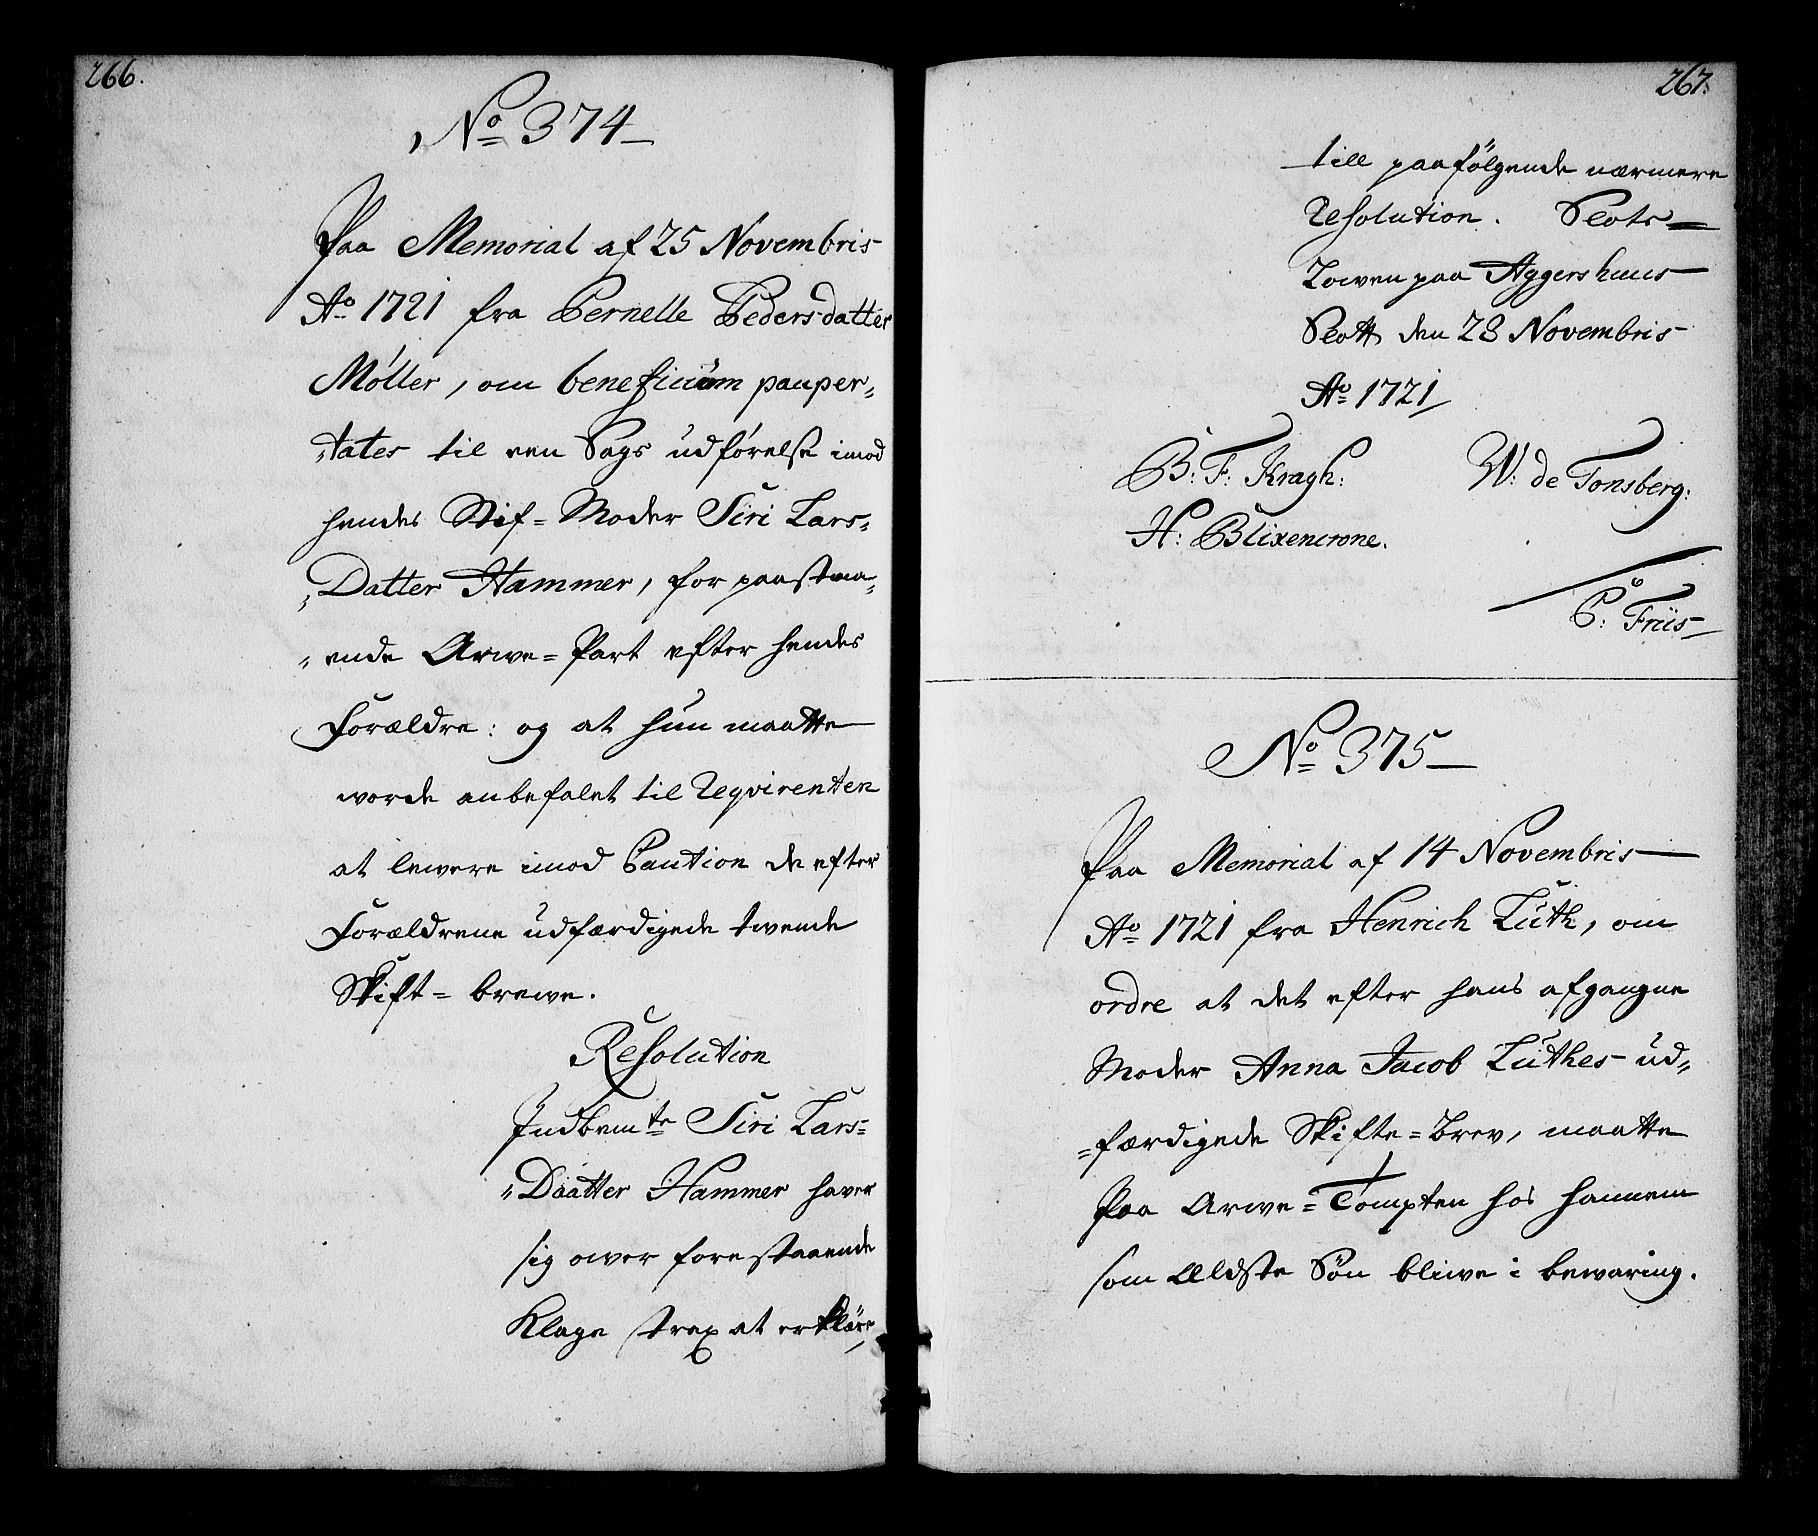 266.
No 374
Paa Memorial af 25 Novembris
Ao 1721 fra Pernelle Pedersdatter
Møller, om beneficium pauper„
„tates til een Sags udførelse imod
hendes Stif=Moder Siri Lars„
„Datter Hammer, for paastaa„
„ende Arwe=Part efter hendes
Forældre: og at hun maatte
worde anbefalet til Reqvirenten
at lewere imod Caution de efter
Forældrene udfærdigede twende
Skift=brewe.
Resolution
Indbemte Siri Lars=
„Daatter Hammer hawer
sig ower forestaaende
Klage strax at erklære
267.
till paafølgende nærmere
Resolution. Slots=
Lowen paa Aggershuus
Slott den 28 Novembris
Ao 1721
B: F: Kragh: W: de Tonsberg:
H: Blixencrone.
P: Friis
No 375
Paa Memorial af 14 Novembris
Ao 1721 fra Henrich Lüth, om
ordre at det efter hans afgangne
Moder Anna Jacob Lüthes ud„
=færdigede Skifte=Brev, maatte
paa Arwe=Tompten hos hannem
som Ældste Søn bliwe i bewaring.